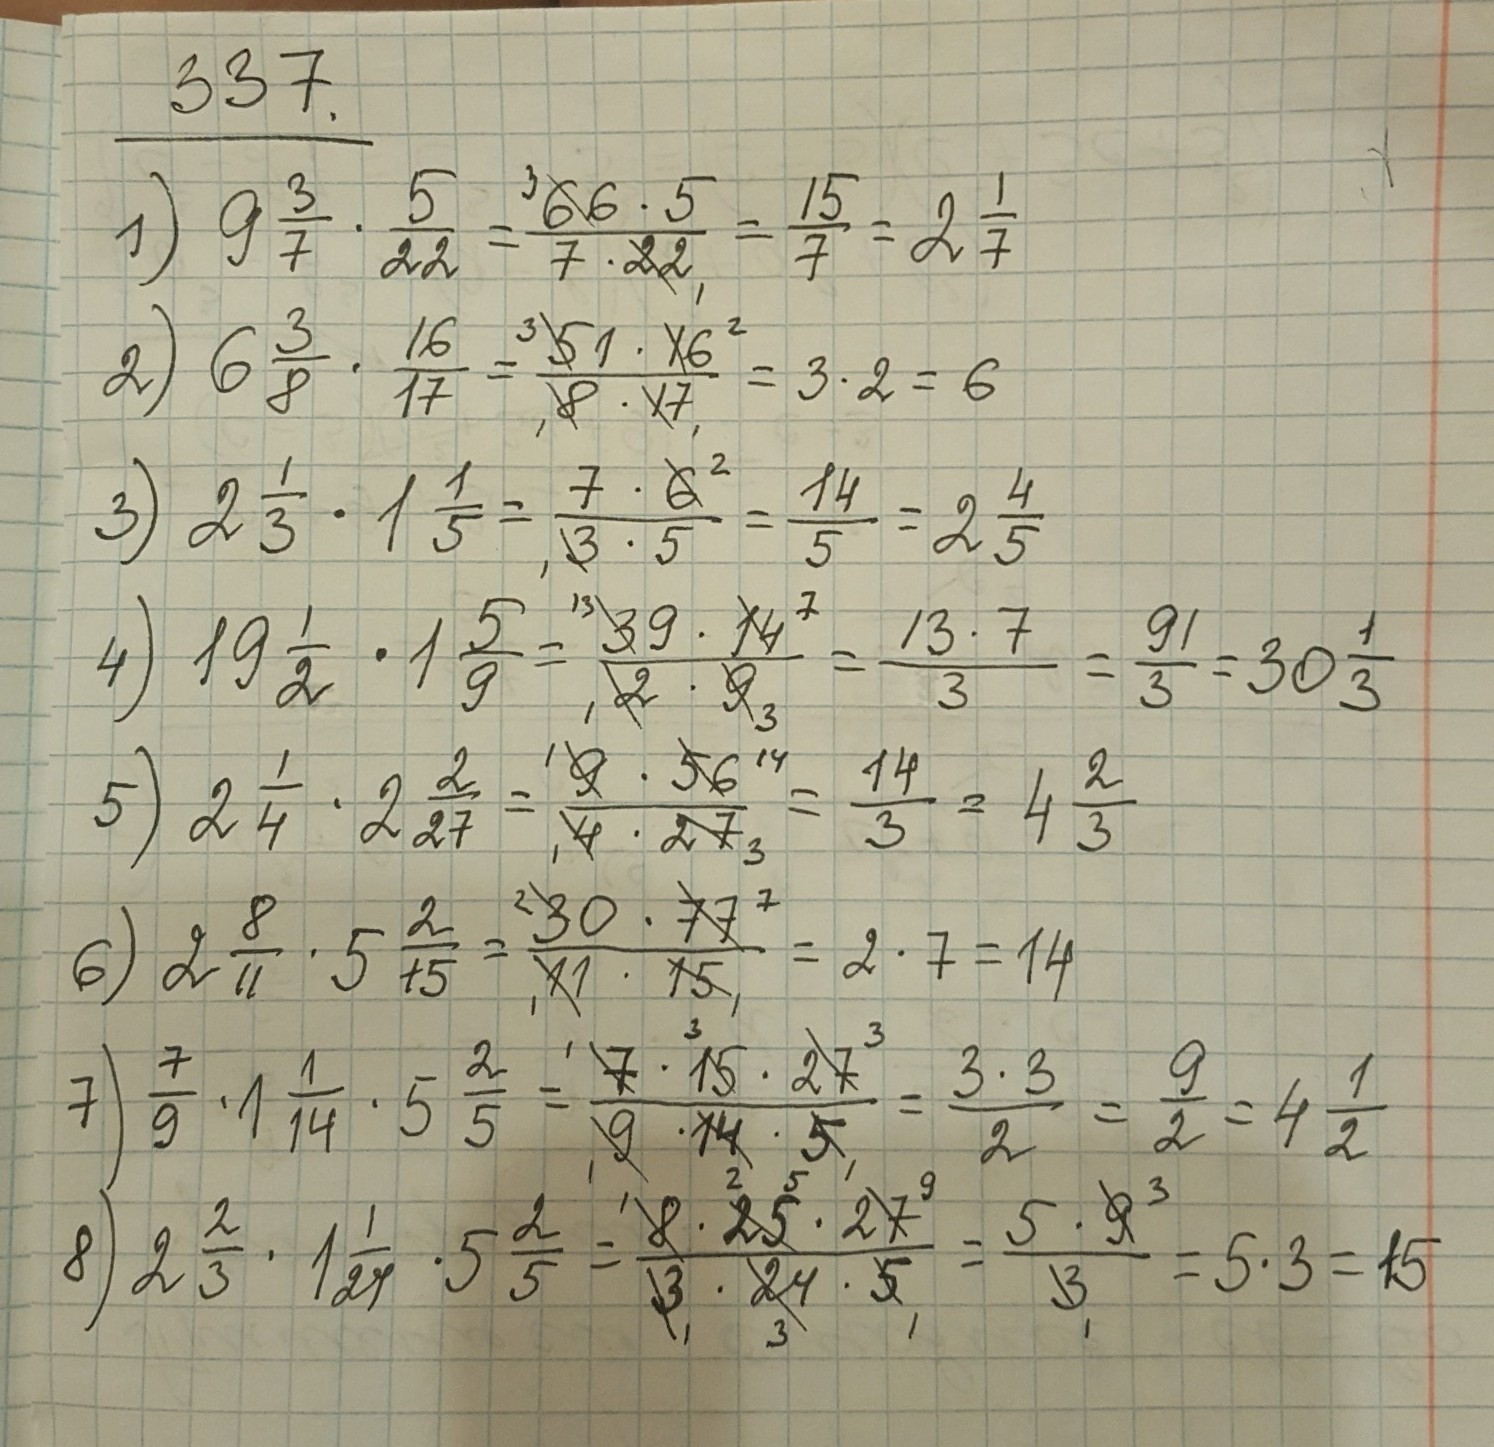 337.
1) 9 3/7 · 5/22 = 66 · 5 / 7 · 22 = 15/7 = 2 1/7
2) 6 3/8 · 16/17 = 51 · 16 / 8 · 17 = 3 · 2 = 6
3) 2 1/3 · 1 1/5 = 7 · 6 / 3 · 5 = 14/5 = 2 4/5
4) 19 1/2 · 1 5/9 = 39 · 14 / 2 · 9 = 13 · 7 / 3 = 91/3 = 30 1/3
5) 2 1/4 · 2 2/27 = 9 · 56 / 4 · 27 = 14/3 = 4 2/3
6) 2 8/11 · 5 2/15 = 30 · 77 / 11 · 15 = 2 · 7 = 14
7) 7/9 · 1 1/14 · 5 2/5 = 7 · 15 · 27 / 9 · 14 · 5 = 3 · 3 / 2 = 9/2 = 4 1/2
8) 2 2/3 · 1 1/24 · 5 2/5 = 8 · 25 · 27 / 3 · 24 · 5 = 5 · 9 / 3 = 5 · 3 = 15